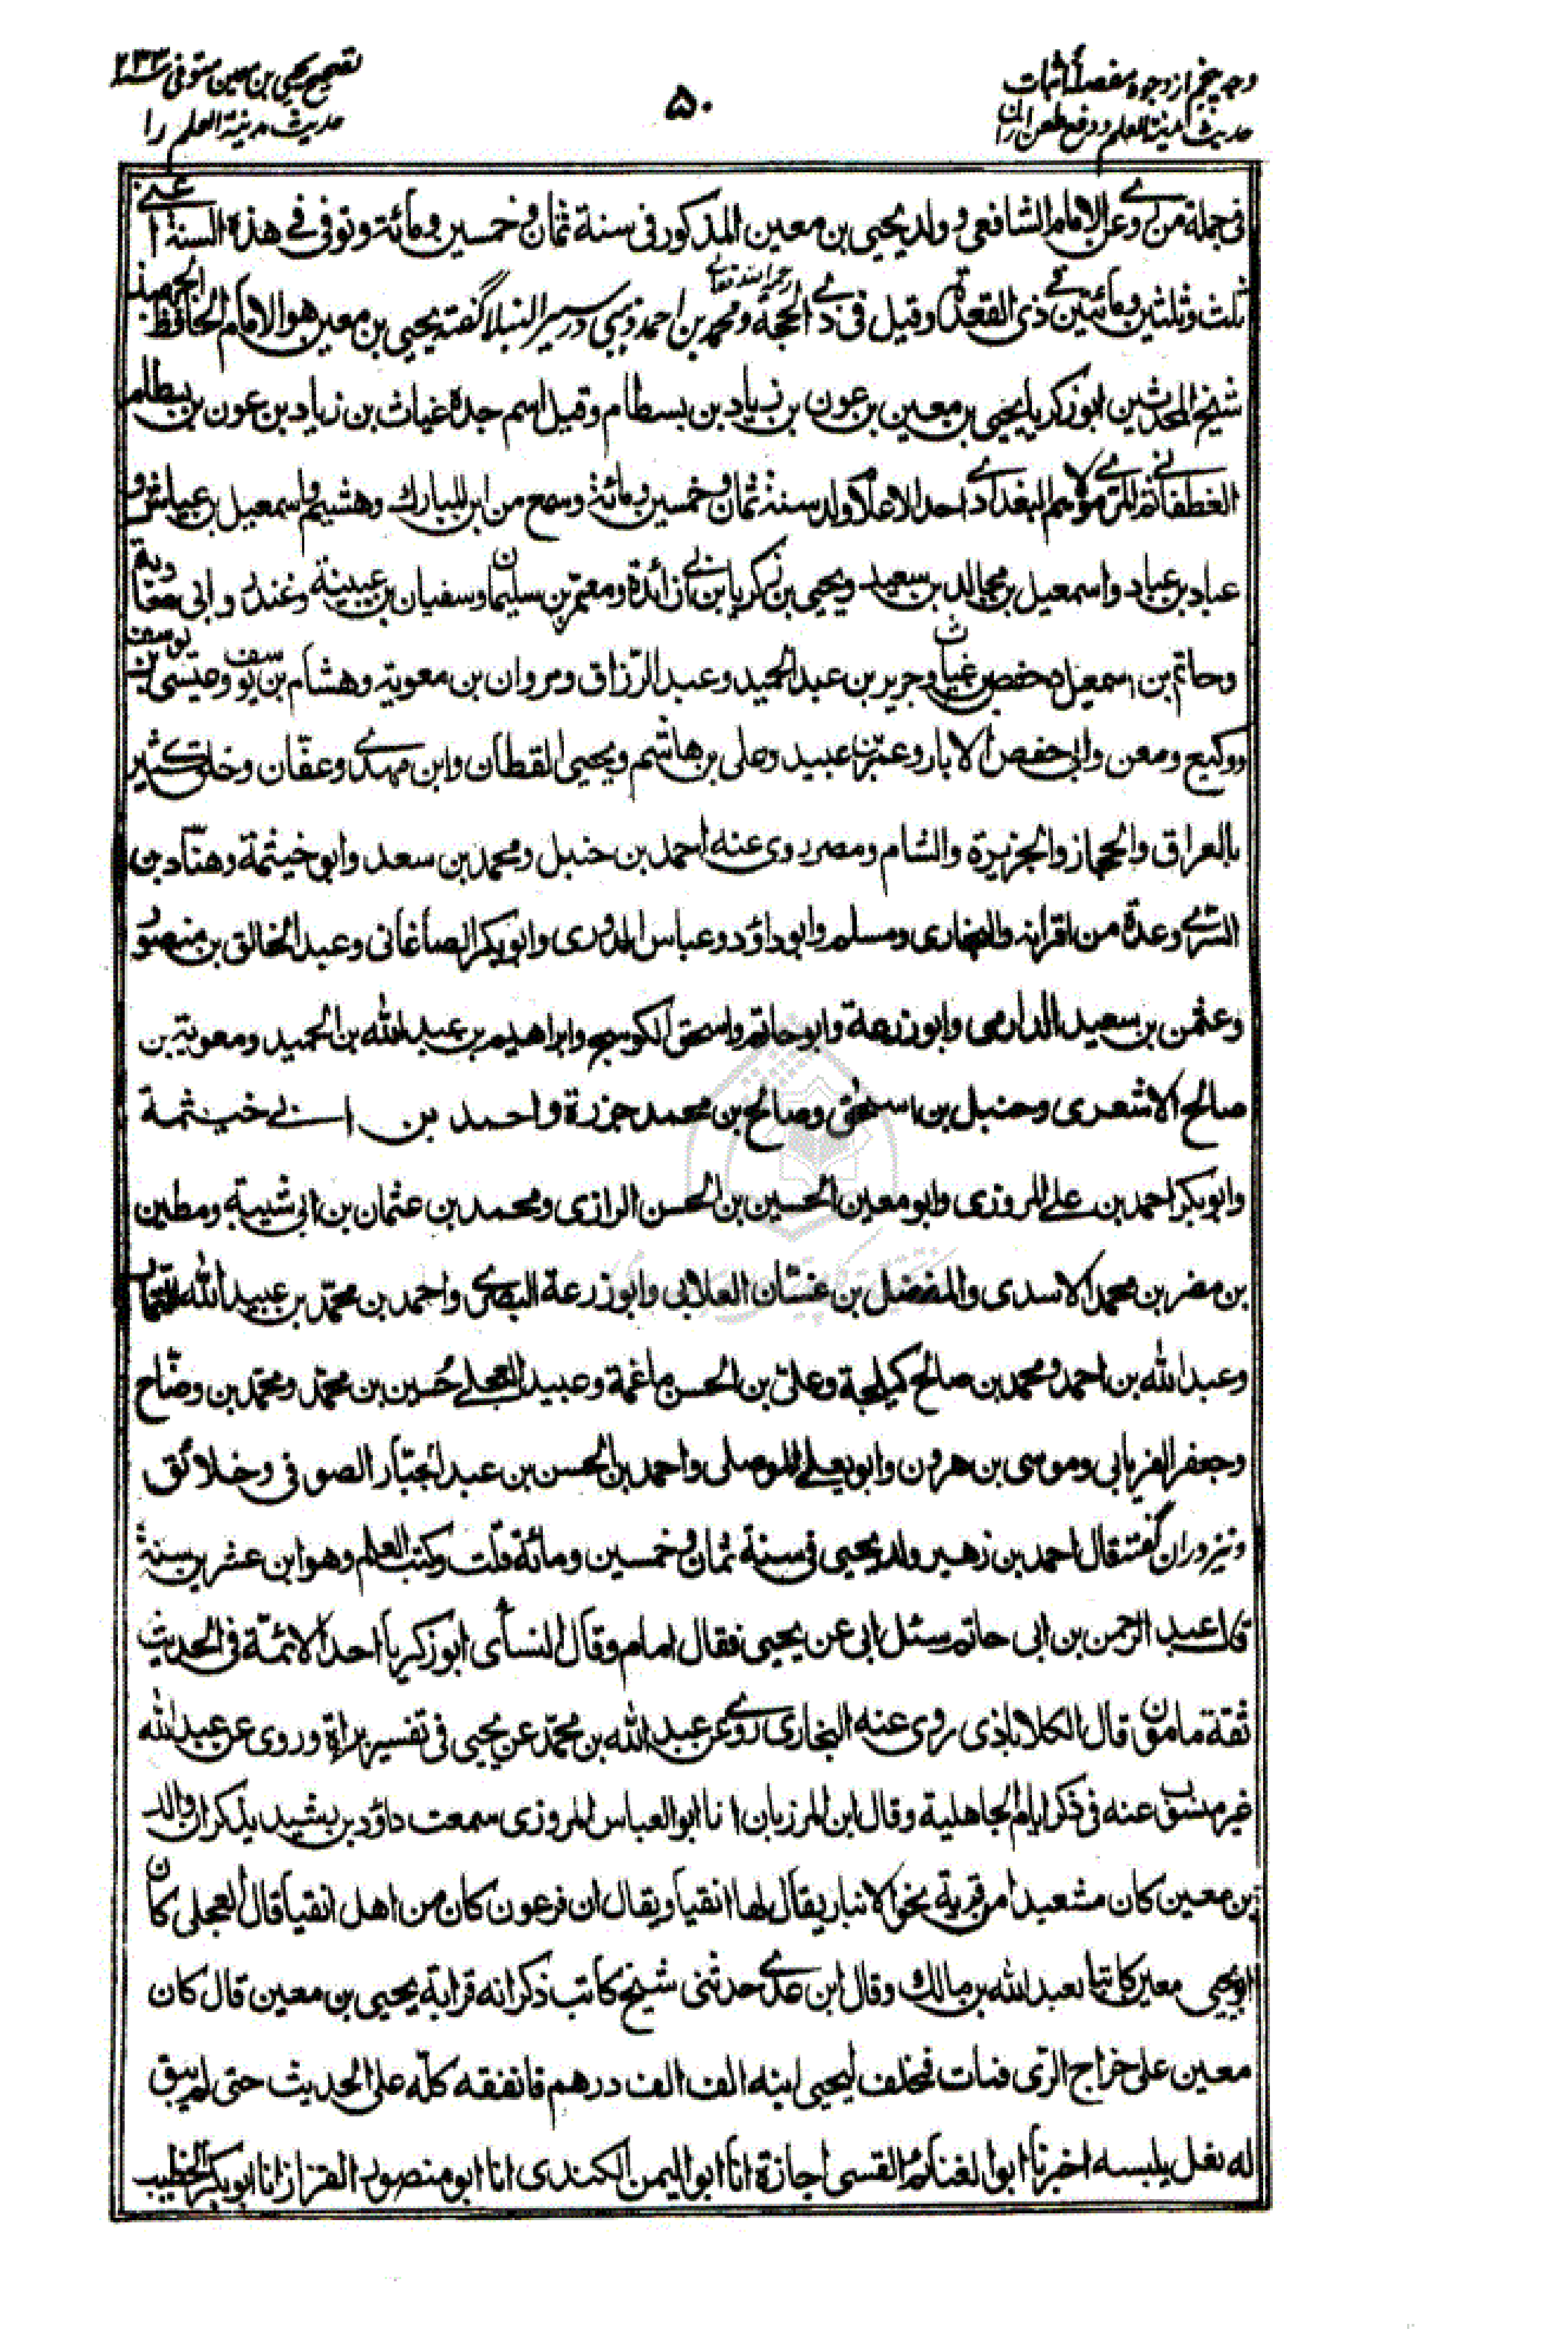 وجه پنجم از وجوه مفصلهٔ اثبات
حدیث مدینة العلم و دفع طعن
۵۰
تصحیح یحیی بن معین متوفی سنه ۲۳۳
حدیث مدینة العلم را
فی جملة من روی عن الامام الشافعی و ولد یحیی بن معین المذکور فی سنة ثمان و خمسین و مائة و توفی فی هذه السنة اعنی
ثلث و ثلثین و مائتین فی ذی القعدة و قیل فی ذی الحجة رحمه الله تعالی و محمد بن احمد ذهبی در سیر النبلا گفته یحیی بن معین هو الامام الحافظ الجهبذ
شیخ المحدثین ابو زکریا یحیی بن معین بن عون بن زیاد بن بسطام و قیل اسم جده غیاث بن زیاد بن عون بن بسطام
الغطفانی ثم المری مولاهم البغدادی احد الاعلام ولد سنة ثمان و خمسین و مائة و سمع من ابن المبارک و هشیم و اسمعیل بن عیاش و
عباد بن عباد و اسمعیل بن مجالد بن سعید و یحیی بن زکریا بن ابی زائدة و معتمر بن سلیمان و سفیان بن عیینة و غندر و ابی معاویة
و حاتم بن اسمعیل و حفص بن غیاث و جریر بن عبد الحمید و عبد الرّزاق و مروان بن معویة و هشام بن یوسف و عیسی بن یونس
و وکیع و معن و ابی حفص الابار و عمر بن عبید و علی بن هاشم و یحیی القطان و ابن مهدی و عفّان و خلق کثیر
بالعراق و الحجاز و الجزیرة و الشام و مصر روی عنه احمد بن حنبل و محمد بن سعد و ابو خیثمة و هنّاد بن
السّری و عدّة من اقرانه و البخاری و مسلم و ابو داؤد و عباس الدوری و ابو بکر الصاغانی و عبد الخالق بن منصور
و عثمن بن سعید الدارمی و ابو زرعة و ابو حاتم و اسحق الکوسج و ابراهیم بن عبد الله بن الجنید و معویة بن
صالح الاشعری و حنبل بن اسحق و صالح بن محمد جزرة و احمد بن ابی خیثمة
و ابو بکر احمد بن علی المروزی و ابو معین الحسین بن الحسن الرازی و محمد بن عثمان بن ابی شیبة و مطین
بن مضر بن محمد الاسدی و المفضل بن غسّان الغلابی و ابو زرعة البصری و احمد بن محمّد بن عبید الله التمار
و عبد الله بن احمد و محمد بن صالح کیلجة و علی بن الحسن ماغمة و عبید العجلی حُسین بن محمّد و محمّد بن وضّاح
و جعفر الفریابی و موسی بن هرون و ابو یعلی الموصلی و احمد بن الحسن بن عبد الجبّار الصوفی و خلائق
و نیز دران گفته قال احمد بن زهیر ولد یحیی فی سنة ثمان و خمسین و مائة قلت و کتب العلم و هو ابن عشرین سنة
قال عبد الرحمن بن ابی حاتم سئل ابی عن یحیی فقال امام و قال النسأی ابو زکریا احد الائمّة فی الحدیث
ثقة مامون قال الکلاباذی روی عنه البخاری روی عن عبد الله بن محمّد عن یحیی فی تفسیر براة و روی عن عبد الله
غیر منسوب عنه فی ذکر ایام الجاهلیة و قال ابن المرزبان انا ابو العباس المروزی سمعت داؤد بن رشید یذکر ان والد
بن معین کان مشعبدا من قریة نحو الانبار یقال لها انقیا و یقال ان فرعون کان من اهل انقیا قال العجلی کان
ابو یحیی معین کاتبا لعبد الله بن مالک و قال ابن عدی حدثنی شیخ کاتب ذکر انه قرابة یحیی بن معین قال کان
معین علی خراج الرّی فمات فخلف لیحیی ابنه الف الف درهم فانفقه کلّه علی الحدیث حتی لم یبق
له نعل یلبسه اخبرنا ابو الغنائم القسی اجازة انا ابو الیمن الکندی انا ابو منصور القزاز انا ابو بکر الخطیب